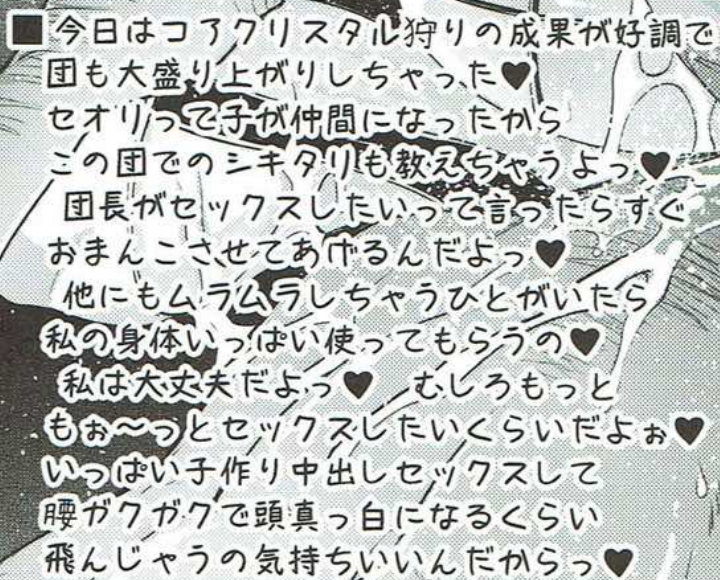 ■今日はコアクリスタル狩りの成果が好調で
団も大盛り上がりしちゃった♥
セオリって子が仲間になったから
この団でのシキタリも教えちゃうよっ♥
団長がセックスしたいって言ったらすぐ
おまんこさせてあげるんだよっ♥
他にもムラムラしちゃうひとがいたら
私の身体いっぱい使ってもらうの♥
私は大丈夫だよっ♥ むしろもっと
もぉ～っとセックスしたいくらいだよぉ♥
いっぱい子作り中出しセックスして
腰ガクガクで頭真っ白になるくらい
飛んじゃうの気持ちいいんだからっ♥